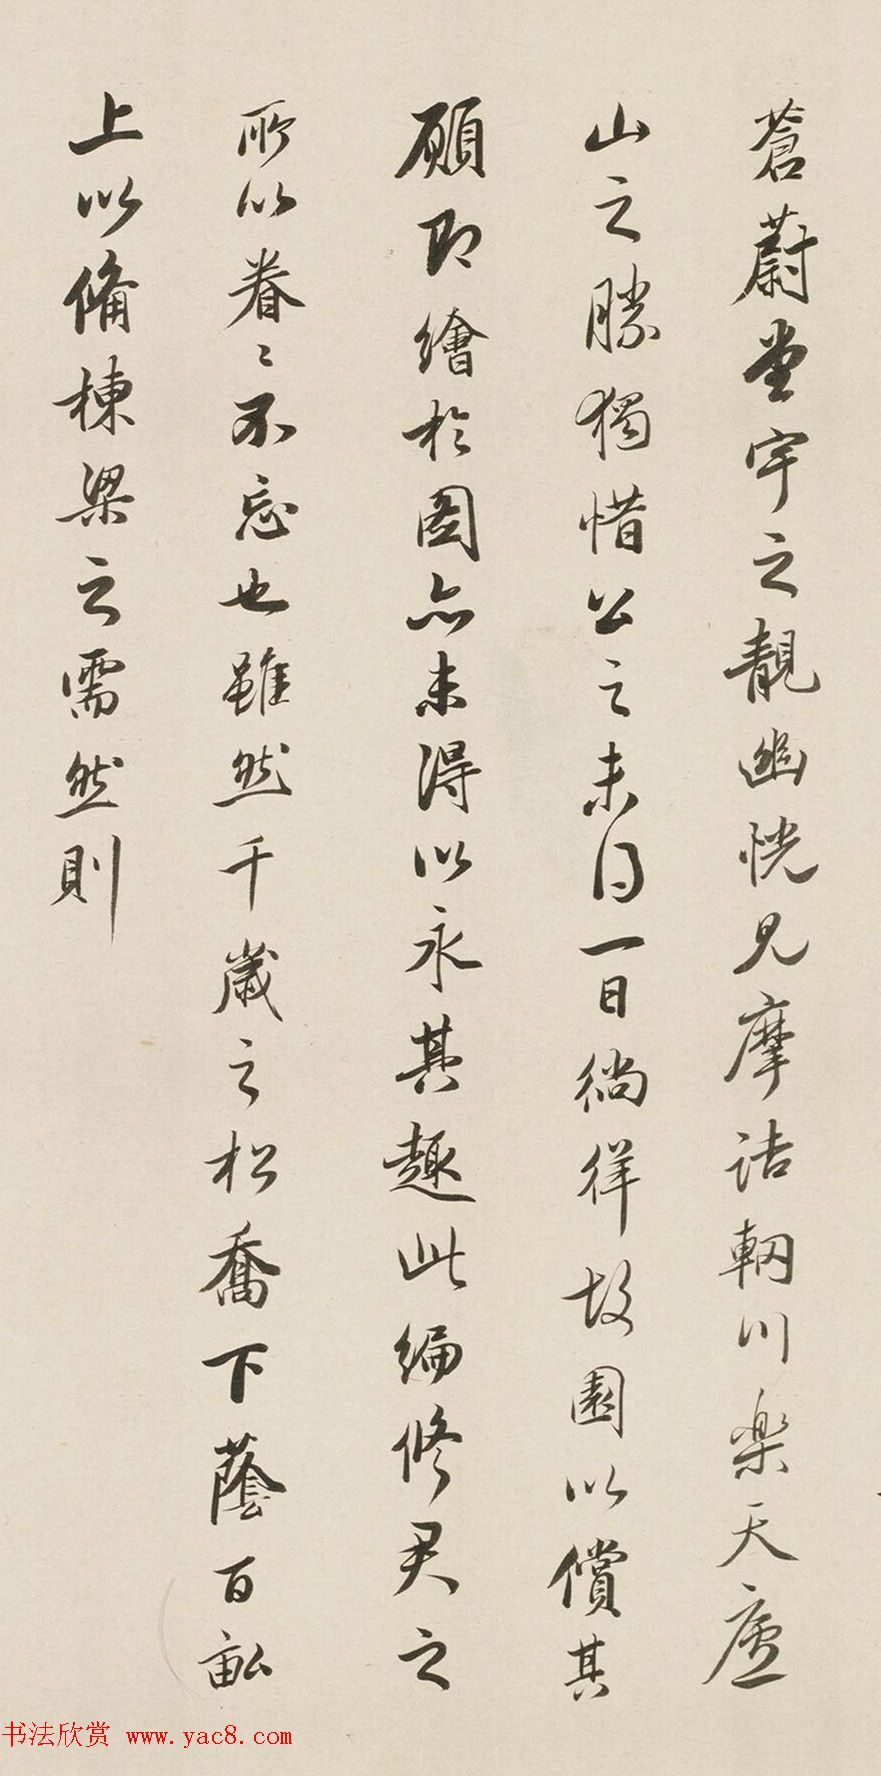 蒼蔚堂宇之靚幽恍見摩詰輞川樂天廬
山之勝獨惜公之未得一日徜徉故園以償其
願即繪於圖亦未得以永其趣此編修君之
所以眷〻不忘也雖然千歲之松喬下蔭百畝
上以備棟梁之需然則
书法欣赏 www.yac8.com